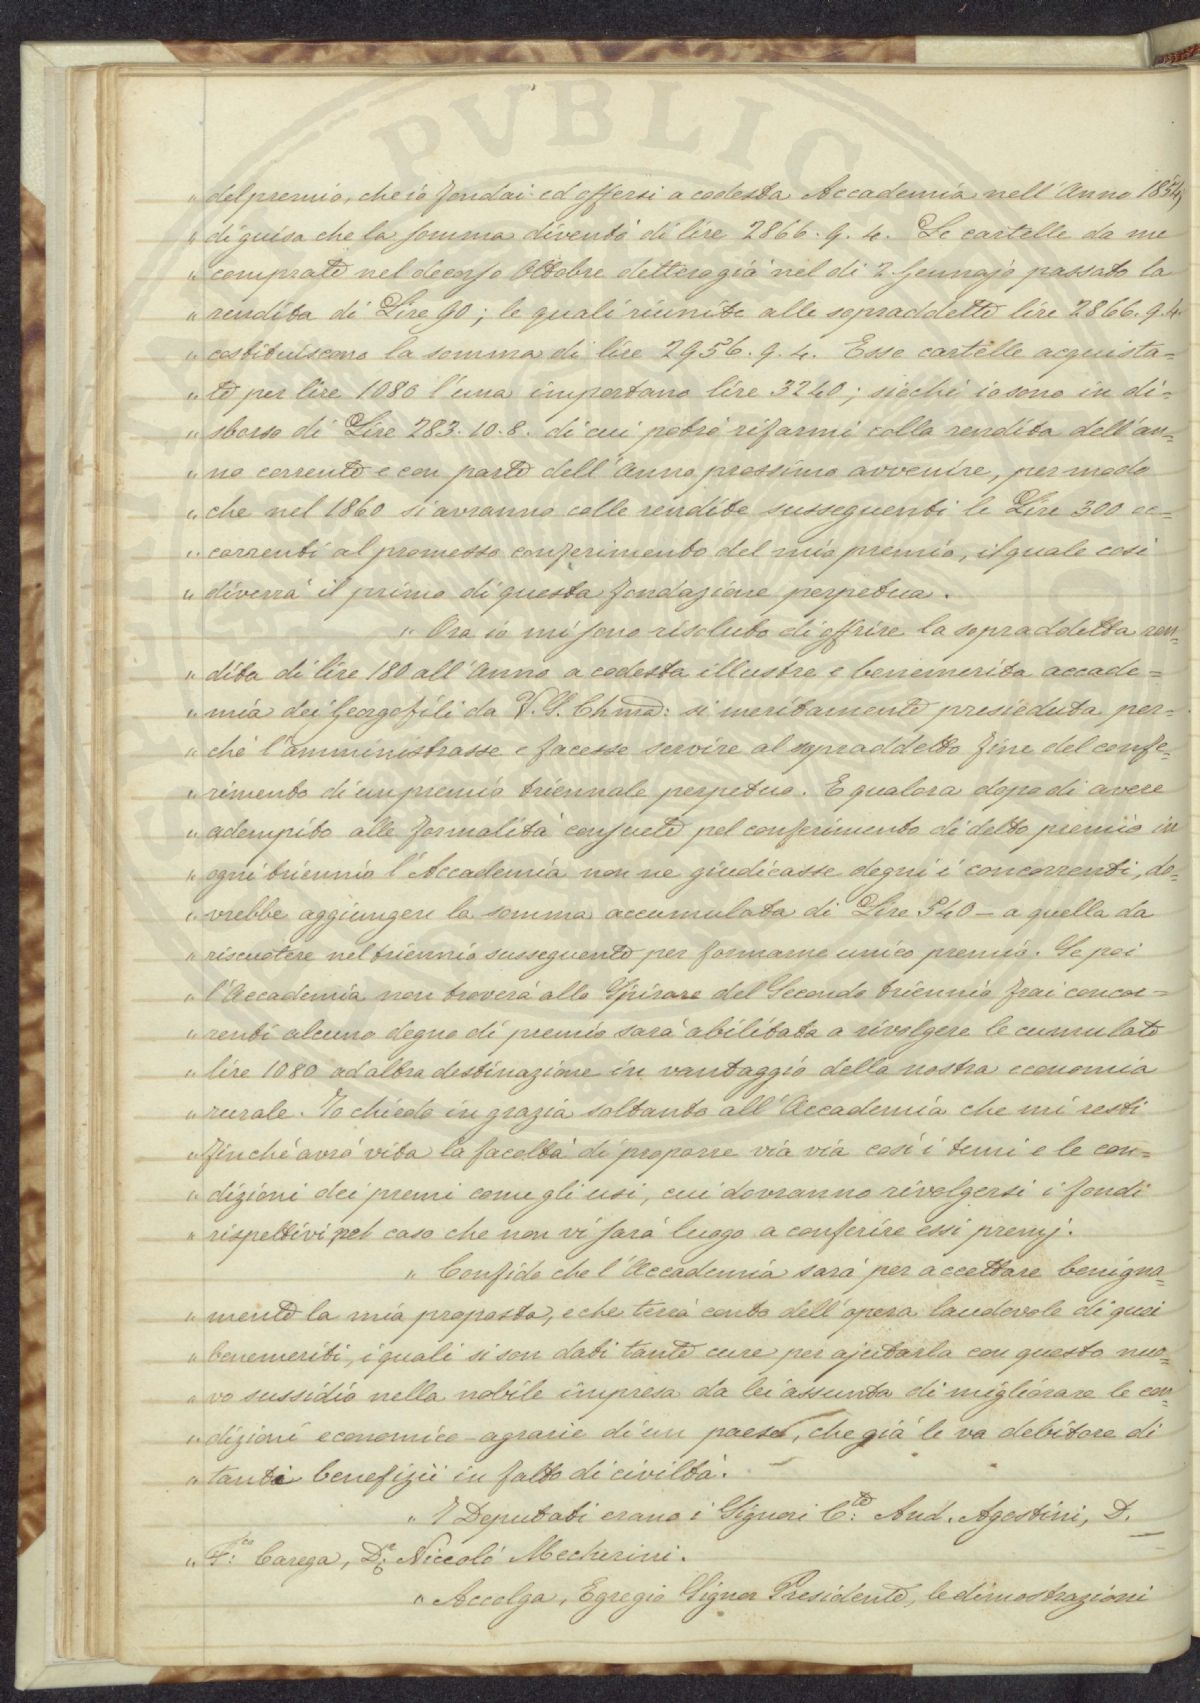 PVBLIC
„ del premio, che io fondai ed offersi a codesta Accademia nell'Anno 1854,
„ di guisa che la somma diventò di lire 2866. 9. 4. Le cartelle da me
„ comprate nel decorso Ottobre dettero già nel di 2. Gennajo passato la
„ rendita di Lire 90; le quali riunite alle sopraddette lire 2866. 9. 4.
„ costituiscono la somma di lire 2956. 9. 4. Esse cartelle acquista=
„ te per lire 1080 l'una importano lire 3240; sicché io sono in di=
„ sborso di Lire 283. 10. 8. di cui potrò rifarmi colla rendita dell'an=
„ no corrente e con parte dell'Anno prossimo avvenire, per modo
„ che nel 1860 si avranno colle rendite susseguenti le Lire 300 oc=
„ correnti al promesso conferimento del mio premio, il quale così
„ diverrà il primo di questa fondazione perpetua.
„ Ora io mi sono risoluto di offrire la sopraddetta ren=
„ dita di lire 180 all'Anno a codesta illustre e benemerita accade=
„ mia dei Georgofili da V. S. Chma: si meritamente presieduta per=
„ ché l'amministrasse e facesse servire al sopraddetto fine del confe=
„ rimento di un premio triennale perpetuo. E qualora dopo di avere
„ adempito alle formalità consuete pel conferimento di detto premio in
„ ogni triennio l'Accademia non ne giudicasse degni i concorrenti, do=
„ vrebbe aggiungere la somma accumulata di Lire 540 – a quella da
„ riscuotere nel triennio susseguente per formarne unico premio. Se poi
„ l'Accademia non troverà allo Spirare del Secondo triennio frai concor=
„ renti alcuno degno di premio sarà abilitata a rivolgere le cumulate
„ lire 1080 ad altra destinazione in vantaggio della nostra economia
„ rurale. Io chiedo in grazia soltanto all'Accademia che mi resti
„ finché avrò vita la facoltà di proporre via via così i temi e le con=
„ dizioni dei premi come gli usi, cui dovranno rivolgersi i fondi
„ rispettivi pel caso che non vi sarà luogo a conferire essi premj.
„ Confido che l'Accademia sarà per accettare benigna=
„ mente la mia proposta, e che terrà conto dell'opera laudevole di quei
„ benemeriti, i quali si son dati tante cure per ajutarla con questo nuo=
„ vo sussidio nella nobile impresa da lei assunta di migliorare le con=
„ dizioni economico-agrarie di un paese, che già le va debitore di
„ tanti benefizii in fatto di civiltà.
„ I Deputati erano i Signori C.te And. Agostini, D.
„ F.co Carega, D.e Niccolò Mecherini.
„ Accolga, Egregio Signor Presidente, le dimostrazioni